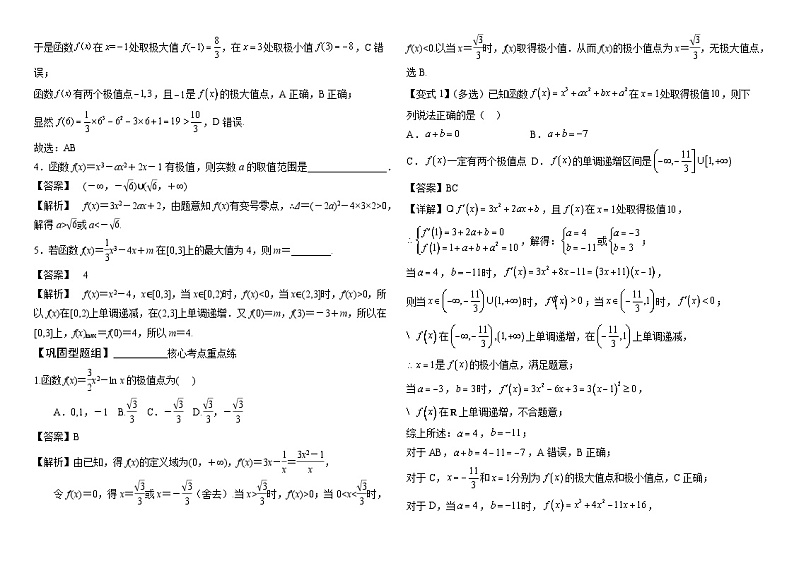 于是函数 f(x) 在 x=−1 处取极大值 f(−1)=8/3，在 x=3 处取极小值 f(3)=−8，C 错
误；
函数 f(x) 有两个极值点 −1,3，且 −1 是 f(x) 的极大值点，A 正确，B 正确；
显然 f(6)=1/3×6³−6²−3×6+1=19>10/3，D 错误.
故选：AB
4．函数 f(x)＝x³－ax²＋2x－1 有极值，则实数 a 的取值范围是________________．
【答案】 (－∞，－√6)∪(√6，＋∞)
【解析】 f(x)＝3x²－2ax＋2，由题意知 f(x)有变号零点，∴Δ＝(－2a)²－4×3×2>0，
解得 a>√6或 a<－√6.
5．若函数 f(x)＝1/3x³－4x＋m 在[0,3]上的最大值为 4，则 m＝________.
【答案】 4
【解析】 f(x)＝x²－4，x∈[0,3]，当 x∈[0,2)时，f(x)<0，当 x∈(2,3]时，f(x)>0，所
以 f(x)在[0,2)上单调递减，在(2,3]上单调递增．又 f(0)＝m，f(3)＝－3＋m，所以在
[0,3]上，f(x)max＝f(0)＝4，所以 m＝4.
【巩固型题组】__________核心考点重点练
1.函数 f(x)＝3/2x²－ln x 的极值点为( )
A．0,1，－1 B.√3/3 C．－√3/3 D.√3/3，－√3/3
【答案】B
【解析】由已知，得 f(x)的定义域为(0，＋∞)，f(x)＝3x－1/x＝(3x²－1)/x，
令 f(x)＝0，得 x＝√3/3或 x＝－√3/3（舍去）当 x>√3/3时，f(x)>0；当 0<x<√3/3时，
f(x)<0.以当 x＝√3/3时，f(x)取得极小值．从而 f(x)的极小值点为 x＝√3/3，无极大值点，
选 B.
【变式 1】(多选）已知函数 f(x)=x³+ax²+bx+a² 在 x=1 处取得极值 10，则下
列说法正确的是（ ）
A．a+b=0 B．a+b=−7
C．f(x) 一定有两个极值点 D．f(x) 的单调递增区间是 (−∞,−11/3]∪[1,+∞)
【答案】BC
【详解】Q f′(x)=3x²+2ax+b，且 f(x) 在 x=1 处取得极值 10，
∴{f′(1)=3+2a+b=0 f(1)=1+a+b+a²=10，解得：{a=4 b=−11 或 {a=−3 b=3；
当 a=4，b=−11 时，f′(x)=3x²+8x−11=(3x+11)(x−1)，
则当 x∈(−∞,−11/3)∪(1,+∞) 时，f′(x)>0；当 x∈(−11/3,1) 时，f′(x)<0；
\ f(x) 在 (−∞,−11/3),(1,+∞) 上单调递增，在 (−11/3,1) 上单调递减，
∴x=1 是 f(x) 的极小值点，满足题意；
当 a=−3，b=3 时，f′(x)=3x²−6x+3=3(x−1)²≥0，
\ f(x) 在 R 上单调递增，不合题意；
综上所述：a=4，b=−11；
对于 AB，a+b=4−11=−7，A 错误，B 正确；
对于 C，x=−11/3 和 x=1 分别为 f(x) 的极大值点和极小值点，C 正确；
对于 D，当 a=4，b=−11 时，f(x)=x³+4x²−11x+16，